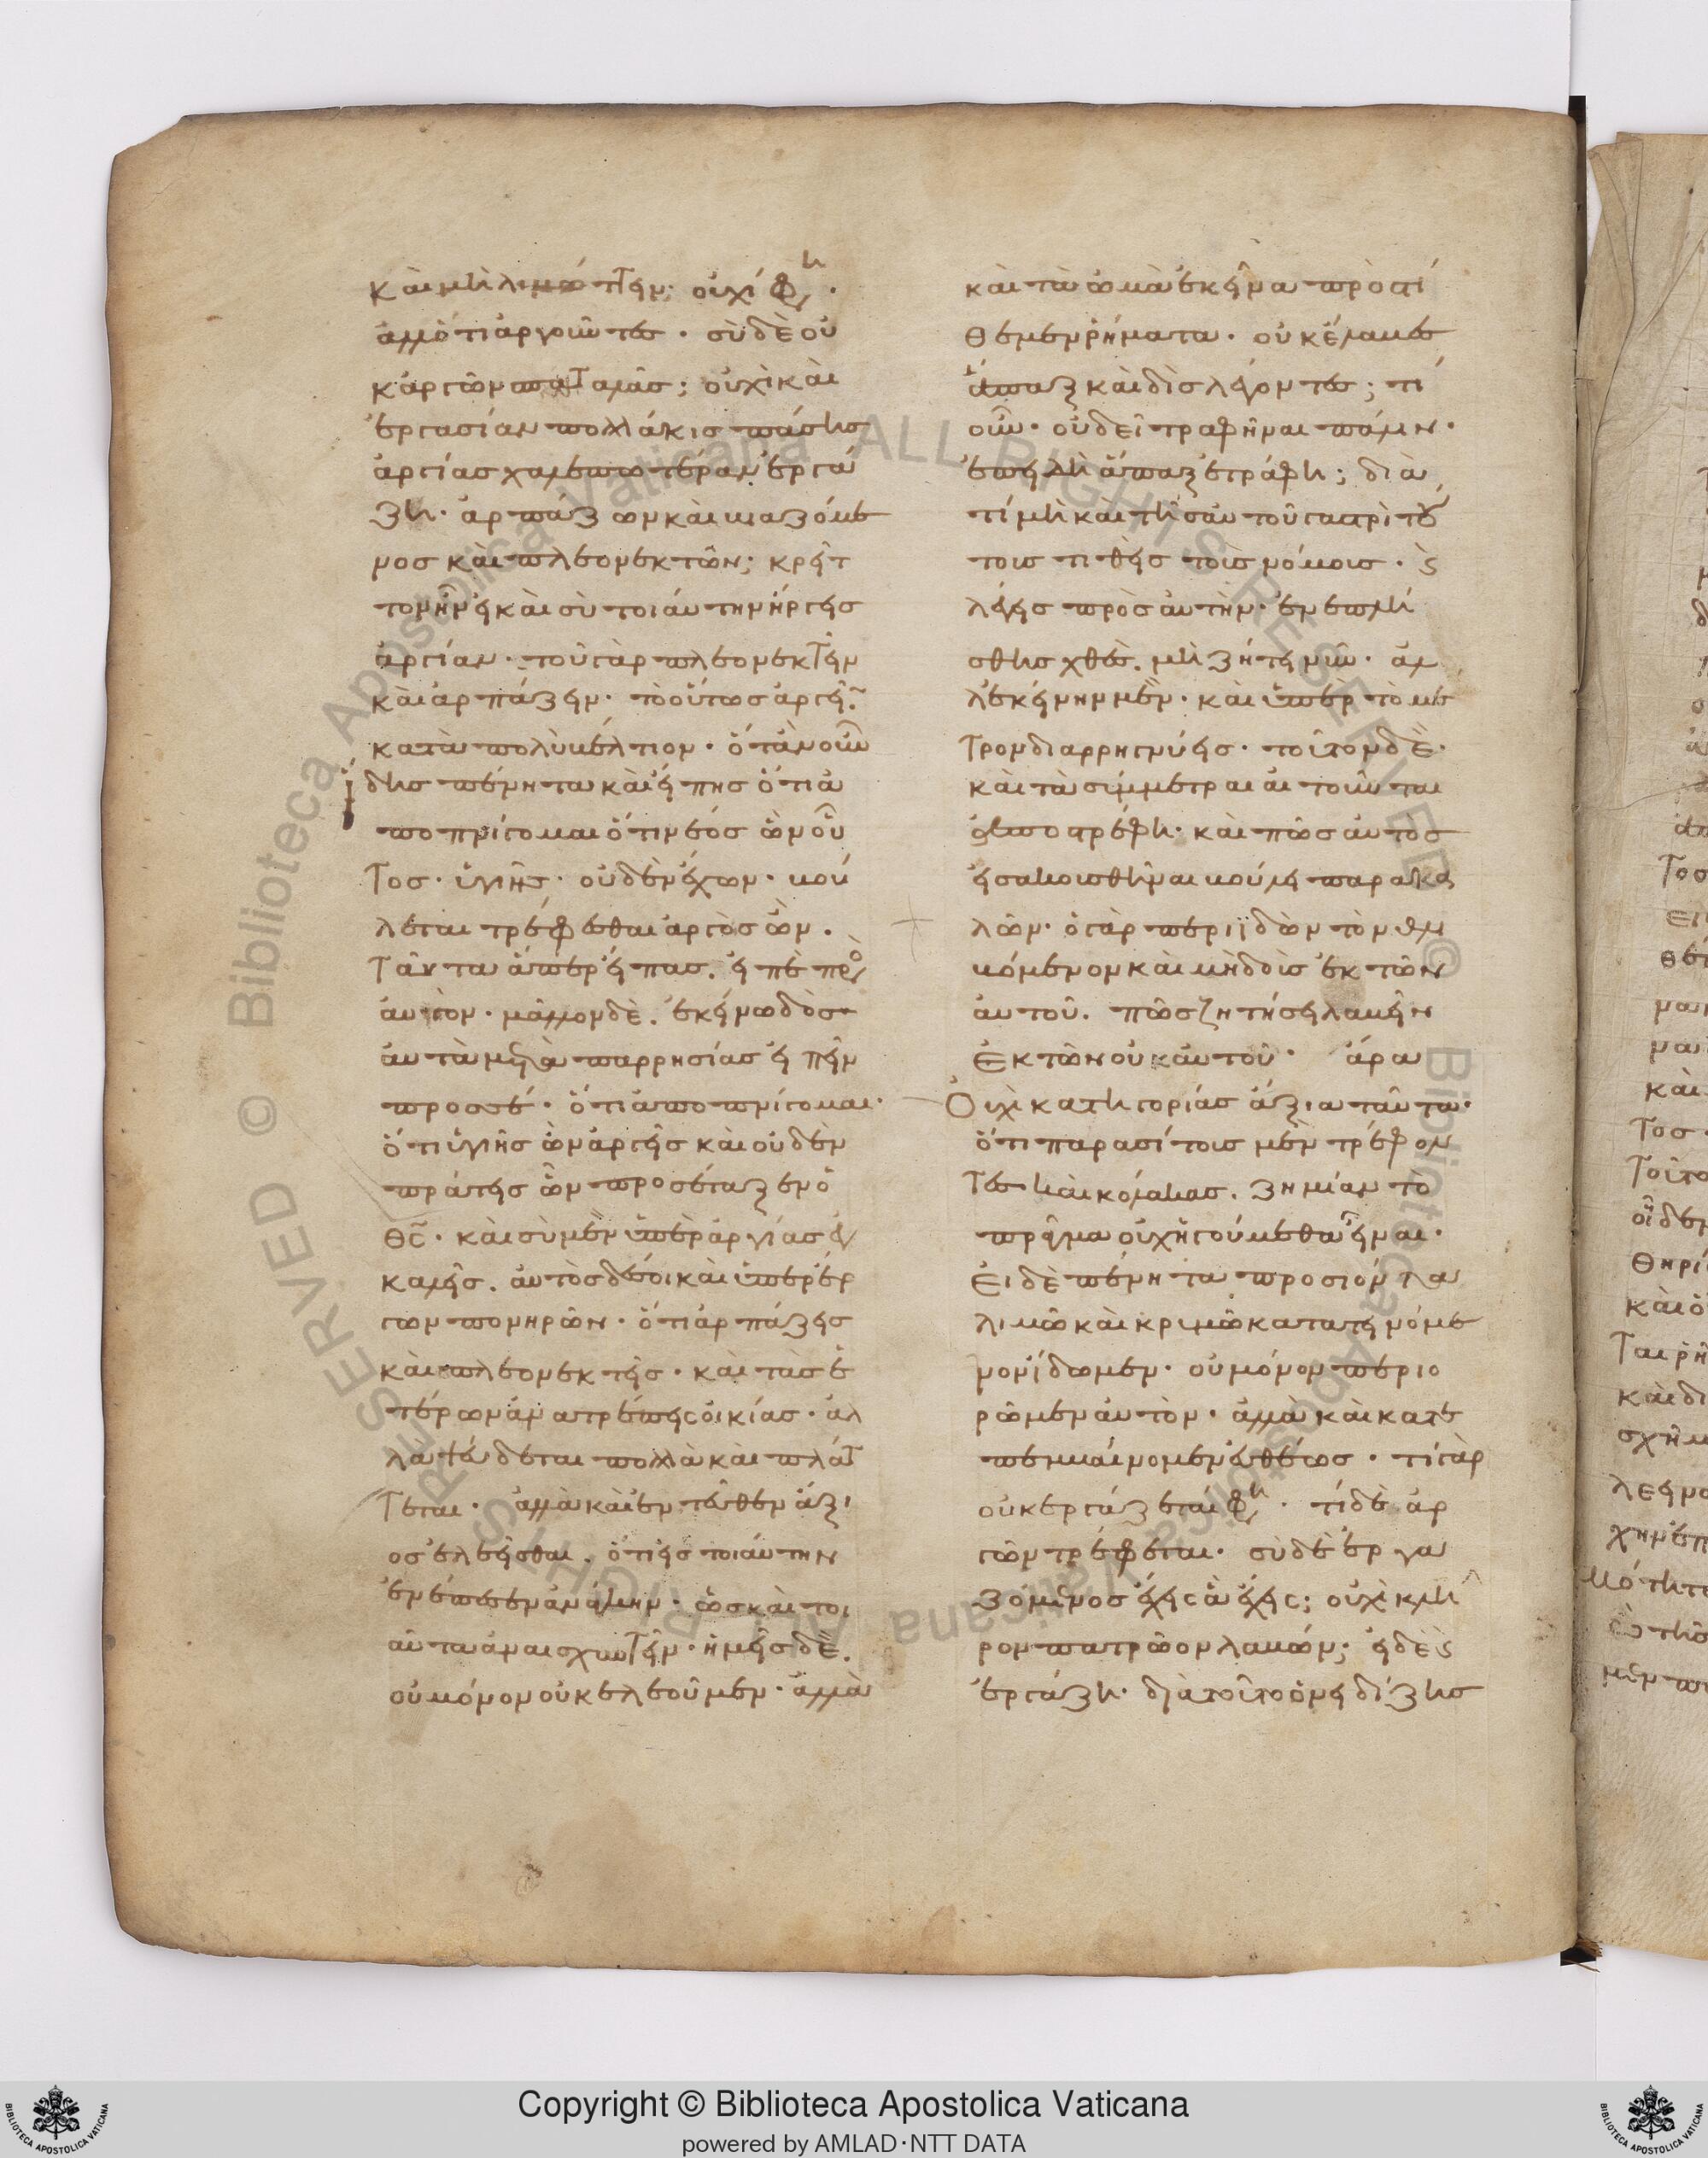 καὶ μὴ λιμώττειν· οὐχί φη·
ἀλλότι ἀργοῦντες· σὺ δὲ οὐ
κ ἀργῶν σπαταλᾶς; οὐχὶ καὶ
ἐργασίαν πολλάκις πάσης
ἀργίας χαλεπωτέραν ἐργά
ζη· ἁρπάζων καὶ βιαζόμε
νος καὶ πλεονεκτῶν; κρεῖτ
τον ἦν εἰ καὶ σὺ τοιαύτην ἤργεις
ἀργίαν· τοῦ γὰρ πλεονεκτεῖν
καὶ ἁρπάζειν· τὸ οὕτως ἀργεῖν
κατὰ πολὺ βέλτιον· ὅταν οὖν
ἴδης πένητα καὶ εἴπης ὅτι ἀ
ποπνίγομαι ὅτι νέος ὢν οὗ
τος· ὑγιὴς· οὐδὲν ἔχων· βού
λεται τρέφεσθαι ἀργὸς ὤν·
ταῦτα ἅπερ εἶπας. εἰπὲ πρὸ
αὐτὸν· μᾶλλον δὲ. ἐκείνω δὸς
αὐτὰ μετὰ παρρησίας εἰπεῖν
πρὸς σέ· ὅτι ἀποπνίγομαι·
ὅτι ὑγιὴς ὢν ἀργεῖς καὶ οὐδὲν
πράττεις ὧν προσέταξεν ὁ
θς· καὶ σὺ μὲν ὑπὲρ ἀργίας ἐγ
καλεῖς. αὐτὸς δέ σοι καὶ ὑπὲρ ἔρ
γων πονηρῶν· ὅτι ἁρπάζεις
καὶ πλεονεκτεῖς· καὶ τὰς ἑ
τέρων ἀνατρέπεις οἰκίας· ἀλ
λὰ ψεύδεται πολλὰ καὶ πλάτ
τεται· ἀλλὰ καὶ ἐντεῦθεν ἄξι
ος ἐλεεῖσθαι. ὅτι εἰς τοιαύτην
ἐνέπεσεν ἀνάγκην· ὡς καὶ τοι
αῦτα ἀναισχυντεῖν· ἡμεῖς δὲ.
οὐ μόνον οὐκ ἐλεοῦμεν· ἀλλὰ
καὶ τὰ ὠμὰ ἐκεῖνα προστί
θεμεν ῥήματα· οὐκ ἔλαβες
ἅπαξ καὶ δὶς λέγοντες; τί
οὖν· οὐ δεῖ τραφῆναι πάλιν·
ἐπειδὴ ἅπαξ ἐτράφη; διὰ
τί μὴ καὶ τῆ σαυτοῦ γαστρὶ τού
τοις τιθεῖς τοῖς νόμοις· καὶ
λέγεις πρὸς αὐτὴν· ἐνεπλή
σθης χθὲς. μὴ ζήτει νῦν· ἀλ
λ' ἐκείνην μὲν· καὶ ὑπὲρ τὸ μέ
τρον διαρρηγνύεις· τοῦτον δὲ·
καὶ τὰ σύμμετρα αἰτοῦντα
ἀποστρέφη· καὶ πῶς αὐτὸς
εἰσακουσθῆναι βούλει παρακα
λῶν· ὁ γὰρ περιϊδὼν τὸν θλι
βόμενον καὶ μὴ δοὺς ἐκ τῶν
αὐτοῦ. πῶς ζητήσει λαβεῖν
ἐκ τῶν οὐκ αὐτοῦ· ἆρα
οὐχὶ κατηγορίας ἄξια ταῦτα·
ὅτι παρασίτους μὲν τρέφον
τες καὶ κόλακας. ζημίαν τὸ
πρᾶγμα οὐχ ἡγούμεθα εἶναι·
εἰ δὲ πένητα προσιόντα
λιμῶ καὶ κρυμῶ κατατεινόμε
νον ἴδωμεν· οὐ μόνον περιο
ρῶμεν αὐτὸν· ἀλλὰ καὶ κατε
πεμβαίνομεν εὐθέως· τί γὰρ
οὐκ ἐργάζεται φη· τί δὲ ἀρ
γῶν τρέφεται· σὺ δὲ ἐργα
ζόμενος ἔχεις ἃ ἔχεις; οὐχὶ κλῆ
ρον πατρῶον λαβών; εἰ δὲ καὶ
ἐργάζη· διὰ τοῦτο ὀνειδίζεις